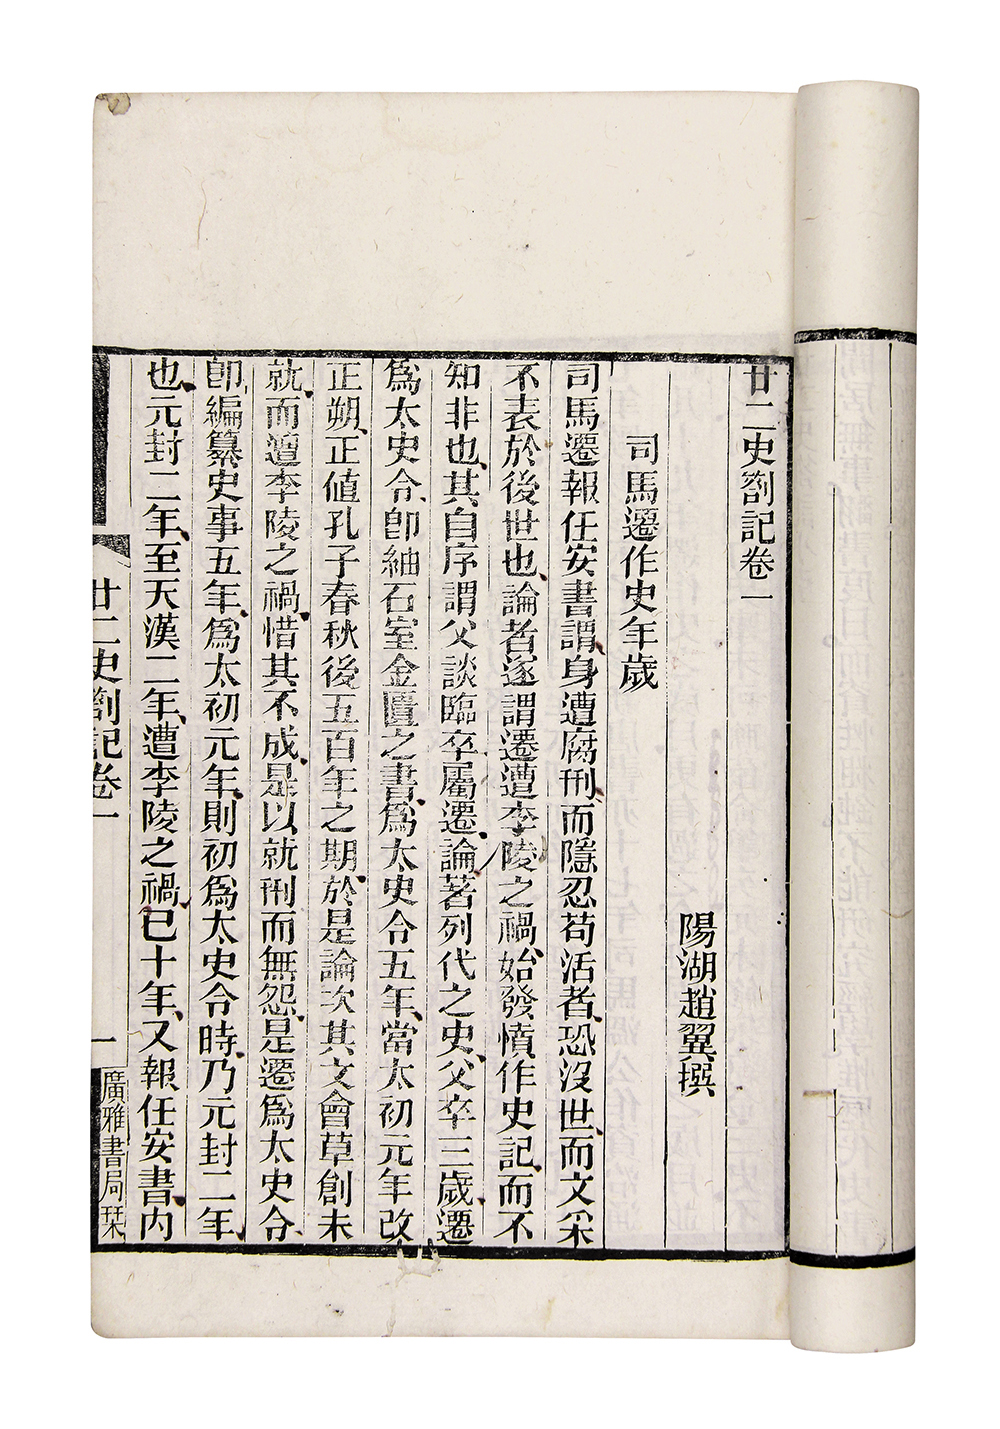 廿二史劄記卷一
陽湖趙翼撰
司馬遷作史年歲
司馬遷報任安書謂身遭腐刑而隱忍苟活者恐沒世而文采
不表於後世也論者遂謂遷遭李陵之禍始發憤作史記而不
知非也其自序謂父談臨卒屬遷論著列代之史父卒三歲遷
爲太史令卽紬石室金匱之書爲太史令五年當太初元年改
正朔正值孔子春秋後五百年之期於是論次其文會草創未
就而遭李陵之禍惜其不成是以就刑而無怨是遷爲太史令
卽編纂史事五年爲太初元年則初爲太史令時乃元封二年
也元封二年至天漢二年遭李陵之禍已十年又報任安書內
廿二史劄記卷一
一
廣雅書局栞